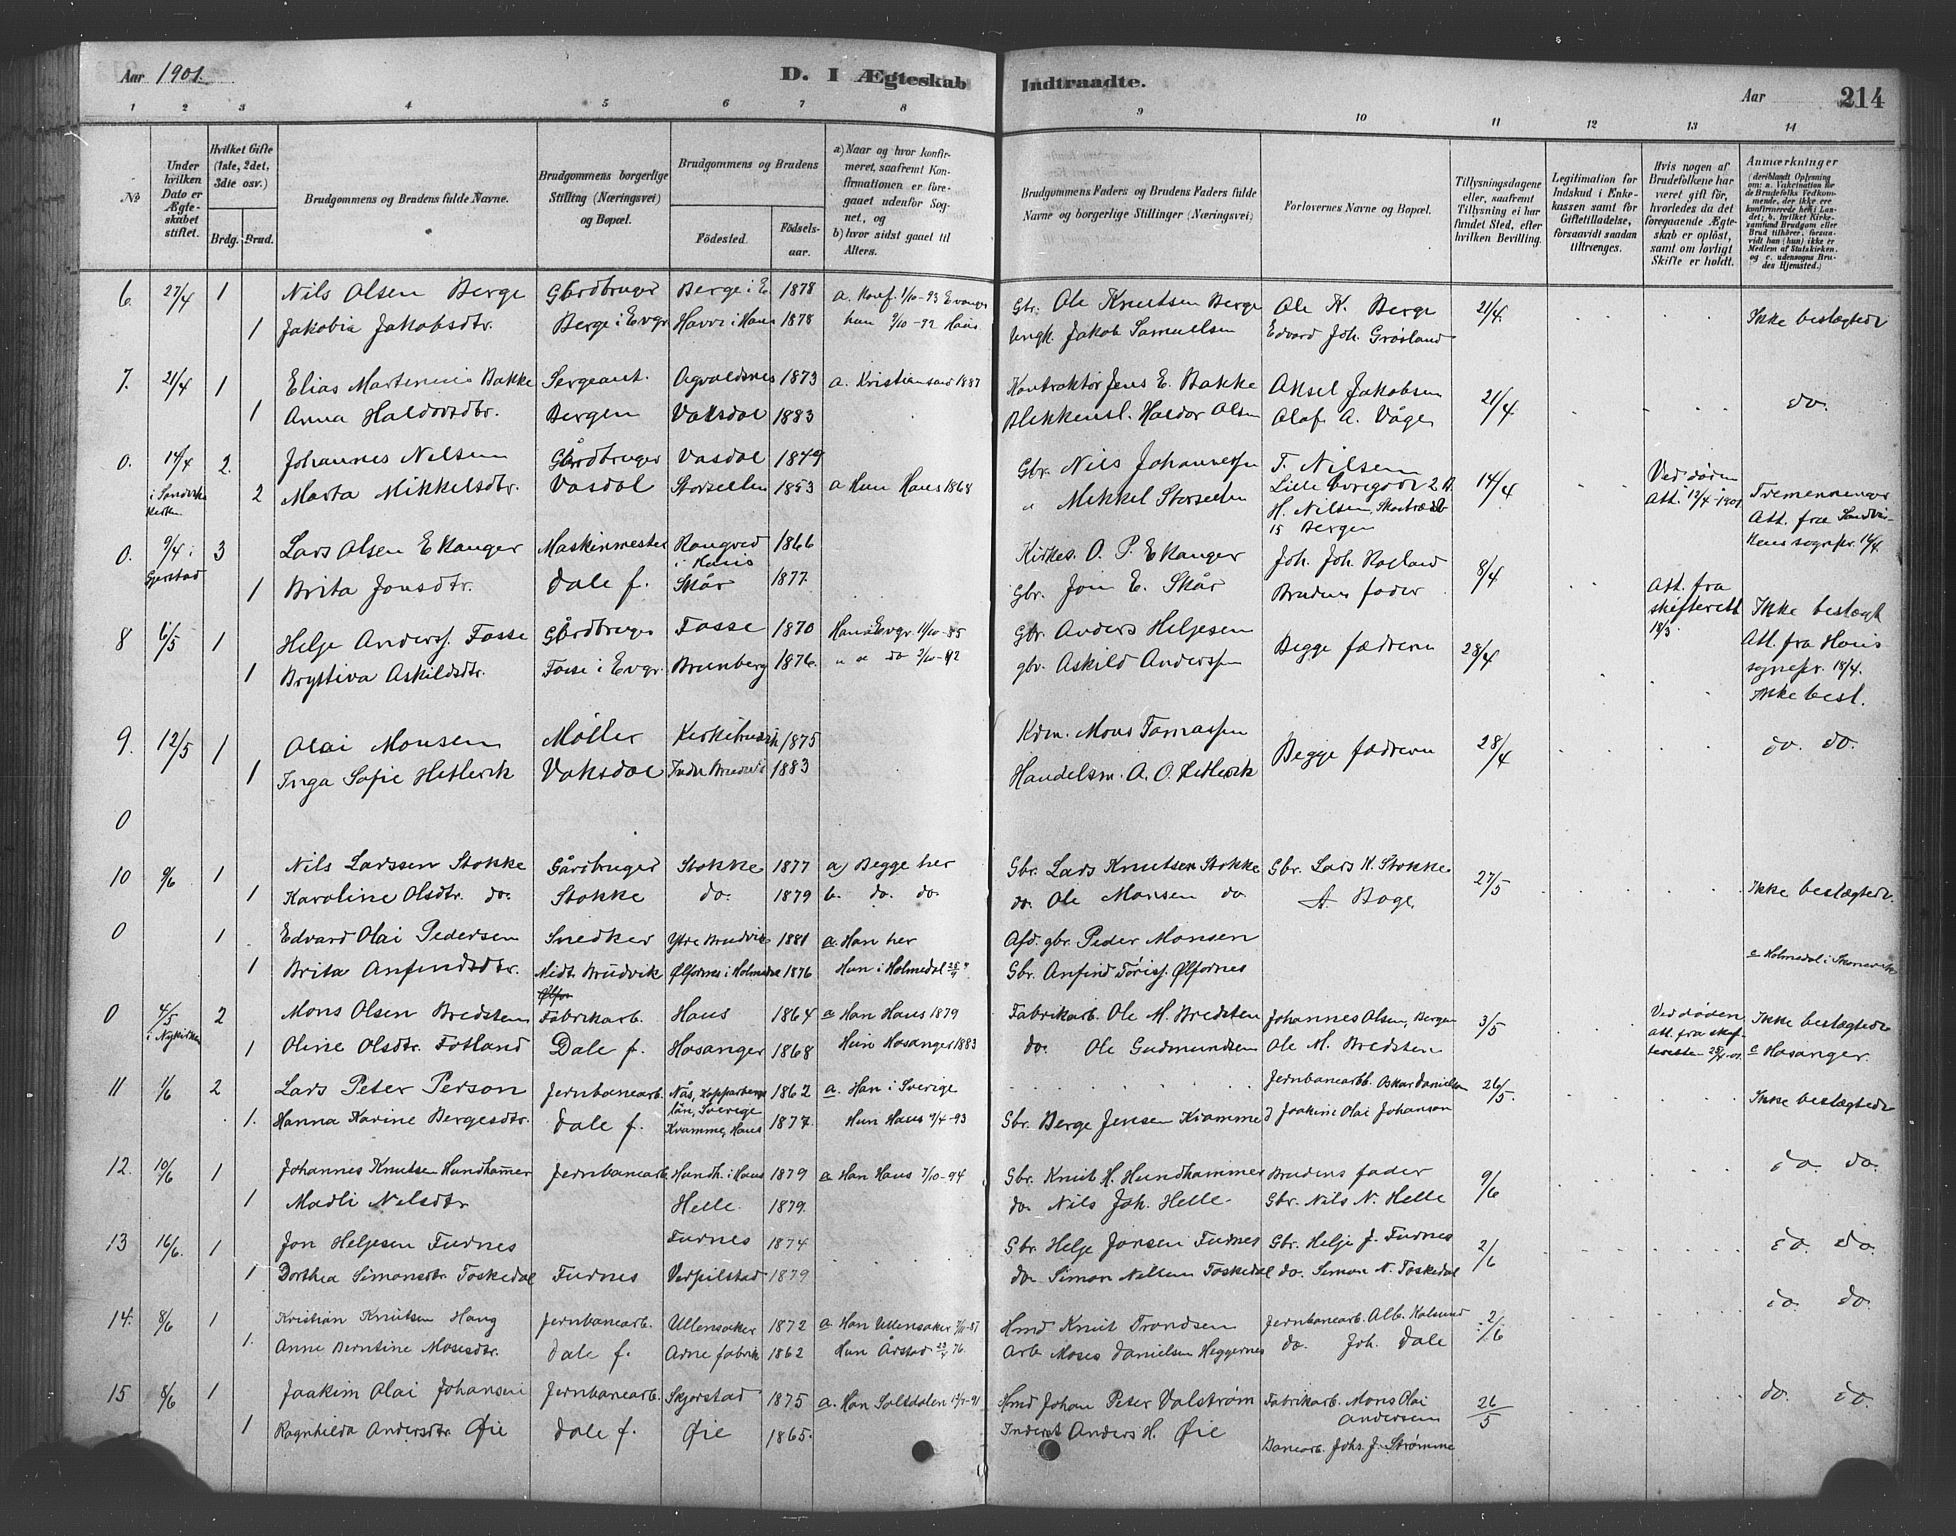 Aar 1901. D. I Ægteskab Indtraadte. Aar 214
1 2 3 4 5 6 7 8 9 10 11 12 13 14
No
Under hvilken Dato er Ægteskabet stiftet.
Hvilket Gifte (1ste, 2det, 3die osv.)
Brdg. Brud.
Brudgommens og Brudens fulde Navne.
Brudgommens borgerlige Stilling (Næringsvei) og Bopæl.
Brudgommens og Brudens
Fødested. Fødselsaar.
a) Naar og hvor konfirmeret, saafremt Konfirmationen er foregaaet udenfor Sognet, og
b) hvor sidst gaaet til Alters.
Brudgommens Faders og Brudens Faders fulde Navne og borgerlige Stillinger (Næringsvei)
Forlovernes Navne og Bopæl.
Tillysningsdagene eller, saafremt Tillysning ei har fundet Sted, efter hvilken Bevilling.
Legitimation for Indskud i Enkekassen samt for Giftetilladelse, forsaavidt saadan tiltrænges.
Hvis nogen af Brudefolkene har været gift før, hvorledes da det foregaaende Ægteskab er opløst, samt om lovligt Skifte er holdt.
Anmærkninger (deriblandt Oplysning om: a. Vakcination for de Brudefolks Vedkommende, der ikke ere konfirmerede her i Landet; b. hvilket Kirkesamfund Brudgom eller Brud tilhører, forsaavidt han (hun) ikke er Medlem af Statskirken. og c. udensogns Brudes Hjemsted.)
6. 27/4 1 Nils Olsen Berge Gårdbruger Berge i E. 1878 a. Konf. 1/10-93 Evanger Gbr. Ole Knutsen Berge Ole K. Berge 21/4. Ikke beslægtede
1 Jakobia Jakobsdtr. Berge i Evgr. i Haus 1878 hun 2/10-92 Haus Ungk. Jakob Samuelsen Edvard Joh. Grøsland
7. 21/4 1 Elias Martinius Bakke Sergeant. Agvaldsnes 1873 a. Kristiansand 1887 Kontraktør Jens E. Bakke Aksel Jakobsen 21/4 do.
1 Anna Haldorsdtr. Bergen Vaksdal 1883 Blikkensl. Haldor Olsen Olaf A. Våge
0. 14/4 i Sandvikskirken 2 Johannes Nilsen Gårdbruger Vasdal 1849 Gbr. Nils Johannessen T. Nilsen Lille 14/4 Ved døden Att. 12/4-1901 Tremenninger
2 Marta Mikkelsdtr. Vasdal Storseeten 1853 a Hun Haus 1868 " Mikkel Storseeten H. Nilsen, 15 Bergen Att. fra Sandvikens sognepr. 14/4.
0. 9/4 i Gjerstad 3 Lars Olsen Ekanger Maskinmester i Haus 1866 Kirkes. O. P. Ekanger Joh. Joh. Rogland 8/4 Att. fra skifterett 18/3. Ikke beslægt
1 Brita Jonsdtr. Dale f. Skår 1877. Gbr. Jon E. Skår Brudens fader Att. fra Haus sognepr. 18/4.
8 6/5 1 Helje Anderss. Fosse Gårdbruger Fosse 1870 Haus i Evgr. 11/10-85 Gbr. Anders Heljesen Begge fædrene 28/4 Ikke besl.
1 Brytteva Askildsdtr. Fosse i Evgr. Brunborg 1876. " " do 2/10-92 gbr. Askild Anderssen
9. 12/5 1 Olai Monsen Møller Kirkebrudvik 1875 Kdm. Mons Tomassen Begge fædrene 28/4 do. do.
1 Inga Sofie Hetlevik Vaksdal Indre Brudvik 1883 Handelsm. A. O. Hetlevik
0
10 9/6 1 Nils Larssen Stokke Gårdbruger Stokke 1877 a) Begge her Gbr. Lars Knutsen Stokke Gbr. Lars K. Stokke 27/5 Ikke beslægtede
1 Karoline Olsdtr. do. Stokke do. 1879 b. do. do do. Ole Monsen do. A. Boge.
0 1 Edvard Olai Pedersen Snedker Ytre Brudvik 1881 a. Han her Afd. gbr. Peder Monsen
1 Brita Anfindsdtr. Midt. Brudvik Ølfornes i Holmedal 1876 Hun i Holmedal Gbr. Anfind Tøriss. Ølfornes c Holmedal i Skonevik
0 4/5 i Nykirken 2 Mons Olsen Bredsten Fabrikarb. Haus 1864 a Han Haus 1879 Fabrikarb. Ole M. Bredsten Johannes Olsen, Bergen 3/5 Ved døden att. fra skifteretten Ikke beslægtede
1 Oline Olsdtr. Fotland Dale f. Hosanger 1868 Hun Hosanger 1883 do. Ole Gudmundsen Ole M. Bredsten c Hosanger.
11 1/6 2 Lars Peter Person Jernbanearb. Nås, Kopparbergs län, Sverige 1862 a. Han i Sverige Jernbanearb. Oskar Danielsen 26/5. Ikke beslægtede
1. Hanna Karine Bergesdtr. Dale f. Kvamme, Haus 1877. Hun Haus 9/4-93 Gbr. Berge Jensen Kvamme d Joakim Olai Johanson
12. 10/6 1 Johannes Knutsen Hundhammer Jernbanearb. Hundh. i Haus 1879 a Han Haus 7/10-94 Gbr. Knut H. Hundhammer Brudens fader 9/6 do. do.
1 Madli Nilsdtr Helle 1879. do. Nils Joh. Helle Gbr. Nils N. Helle
13 16/6. 1 Jon Heljesen Furnes Furnes 1874 Gbr. Helje Jonsen Furnes Gbr. Helje J. Furnes 2/6 do. do.
1 Dorthea Simonsdtr. Toskedal Furnes Verpilstad 1879 do. Simon Nilsen Toskedal do. Simon N. Toskedal
14. 8/6 1 Kristian Knutsen Haug Jernbanearb. Ullensaker 1872 a Han Ullensaker Hmd Knut Trondsen Jernbanearb. Alb. Kalsund 2/6 do. do.
1. Anne Berntine Mosesdtr. Dale f. Arne fabrik 1862 Hun Årstad Arb Moses Danielsen Heggernes do. Joh. Dale
15 8/6 1 Joakim Olai Johansen Jernbanearb. Skjerstad 1875 a. Han Saltdalen Hmd Johan Peter Valstrøm Fabrikarb. Mons Olai Andersen 26/5 do. do.
1 Ragnhilda Andersdtr Øie Dale f. Øie 1865. Inderst Anders H. Øie Banearb. Johs. J. Strømme